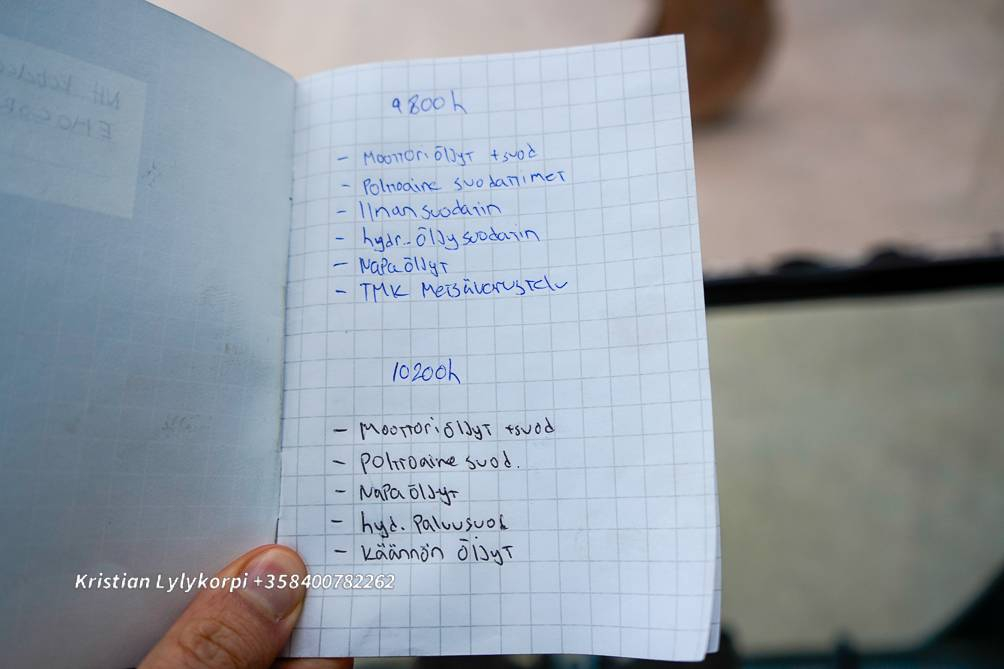 9800h
- Moottoriöljyt +suod
- Polttoaine suodattimet
- Ilman suodatin
- hydr. öljysuodatin
- Napaöljyt
- TMK Metsävarustelu
10200h
- Moottoriöljyt +suod
- Polttoaine suod.
- Napaöljyt
- hyd. Paluusuod
- Käännön öljyt
Kristian Lylykorpi +358400782262